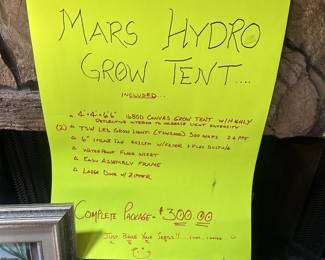 MARS HYDRO
GROW TENT....
INCLUDED...
4'x4'x6'6" 1680D CANVAS GROW TENT W/ HIGHLY
REFLECTIVE INTERIOR TO INCREASE LIGHT INTENSITY
(2) TSW LED GROW LIGHT (TSW2000) 300 WATTS
6" INLINE FAN W/FILTER
WATERPROOF FLOOR INSERT
EASY ASSEMBLY FRAME
LARGE DOOR W/ ZIPPER
COMPLETE PACKAGE - $300.00
JUST BRING YOUR SEEDS!!